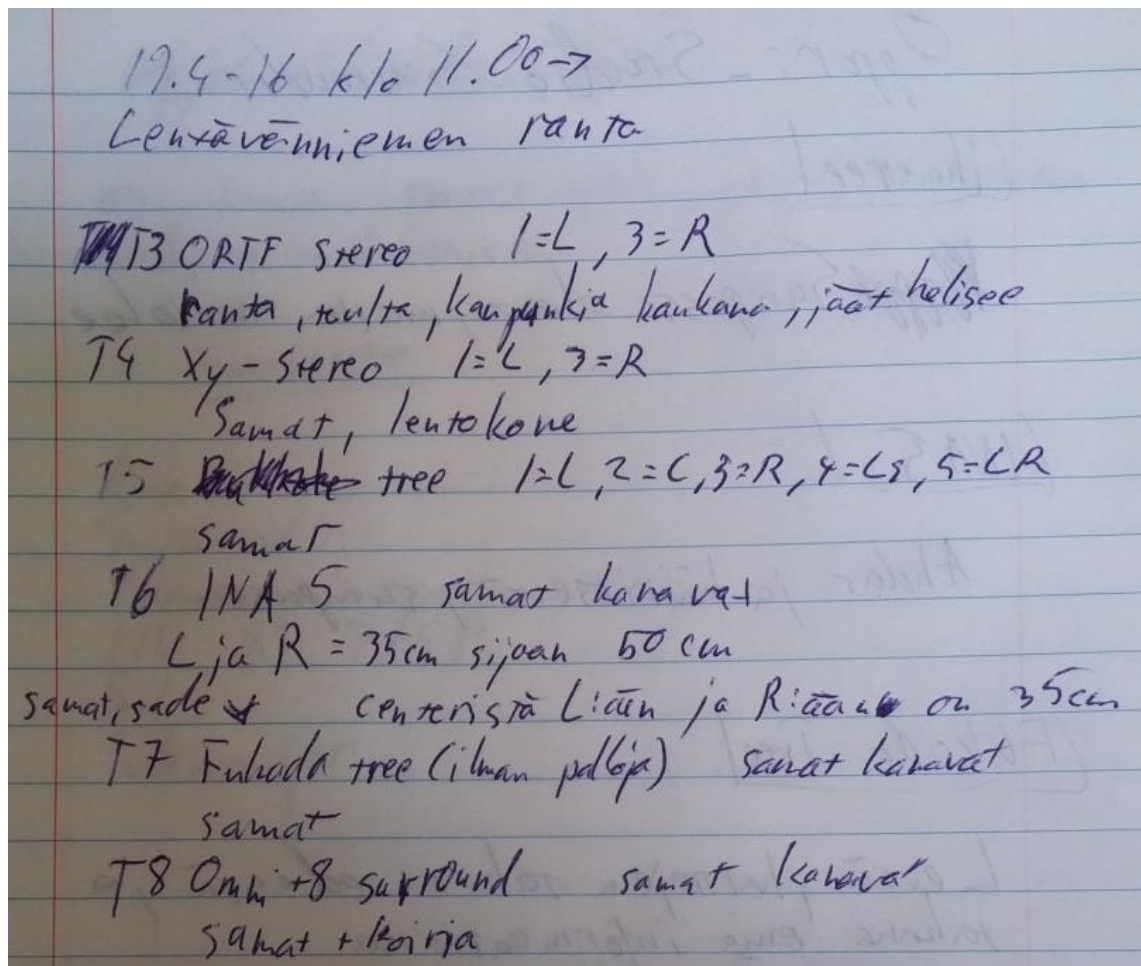 19.4-16 klo 11.00->
Lentävänniemen ranta
T3 ORTF stereo 1=L, 3=R
ranta, tuulta, kaupunkia kaukana, jäät helisee
T4 XY-stereo 1=L, 3=R
samat, lentokone
T5 tree 1=L, 2=C, 3=R, 4=Ls, 5=LR
samat
T6 INA 5 samat kanavat
L ja R = 35cm sijaan 50 cm
samat, sade centeristä L:ään ja R:ään on 35cm
T7 Fukada tree (ilman palloja) samat kanavat
samat
T8 Omni+8 surround samat kanavat
samat + koiria